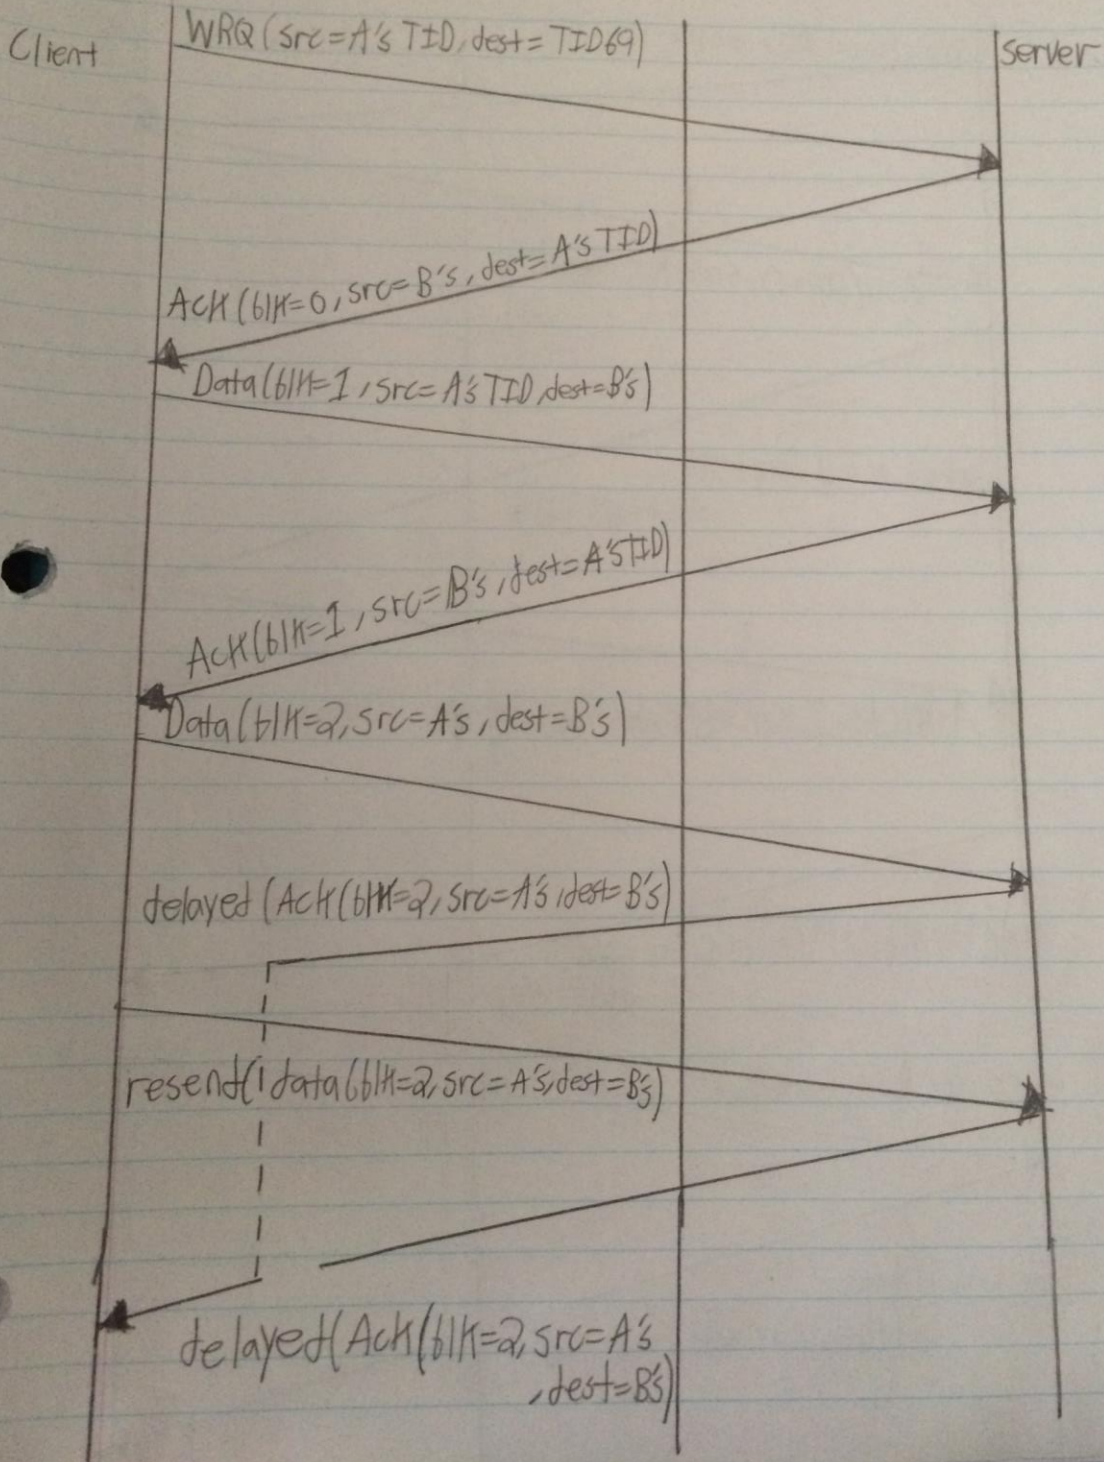 Client
WRQ(src=A's TID, dest=TID69)
server
Ack(blk=0, src=B's, dest=A's TID)
Data(blk=1, src=A's TID, dest=B's)
Ack(blk=1, src=B's, dest=A's TID)
Data(blk=2, src=A's, dest=B's)
delayed(Ack(blk=2, src=A's, dest=B's)
resend(data(blk=2, src=A's, dest=B's)
delayed(Ack(blk=2, src=A's
, dest=B's)